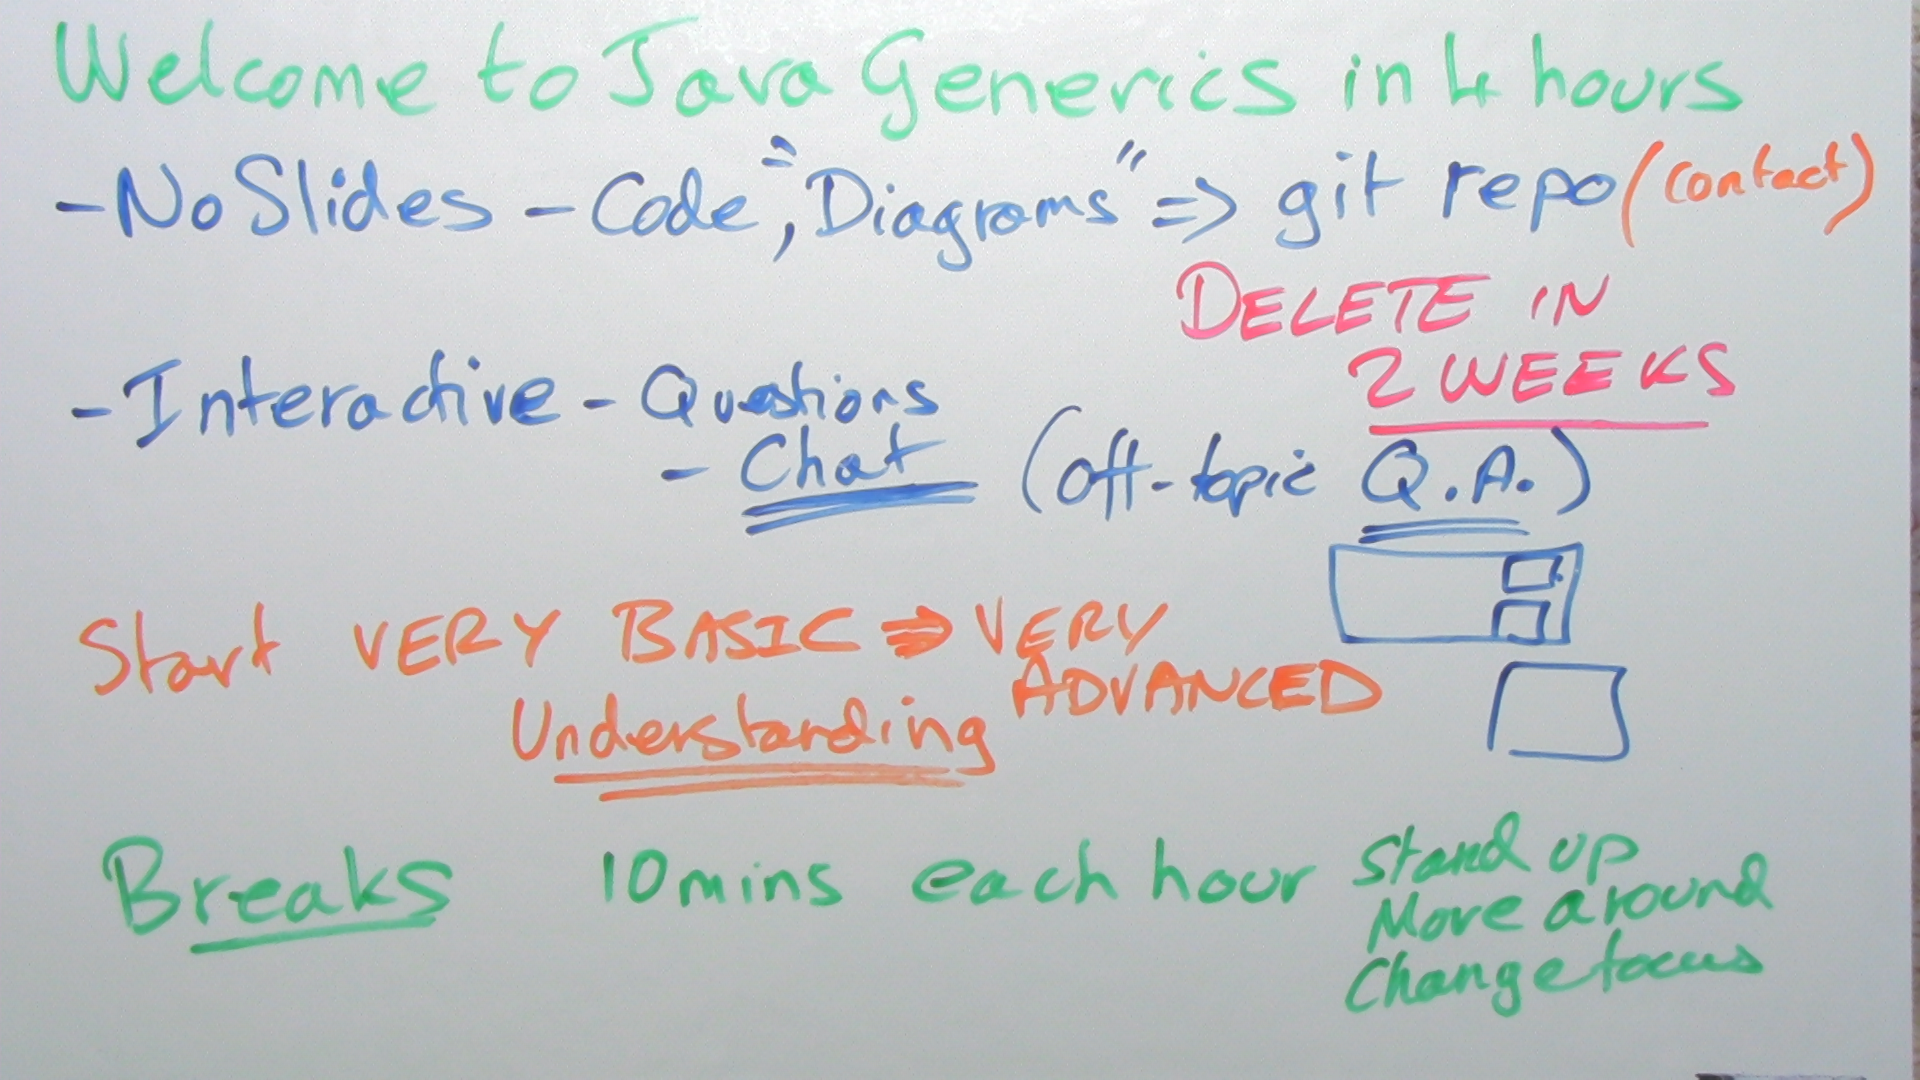 Welcome to Java Generics in 4 hours
- No Slides - Code, "Diagrams" => git repo (contact)
DELETE IN
2 WEEKS
- Interactive - Questions
- Chat (off-topic Q.A.)
Start VERY BASIC => VERY
ADVANCED
Understanding
Breaks 10 mins each hour Stand up
Move around
Change focus